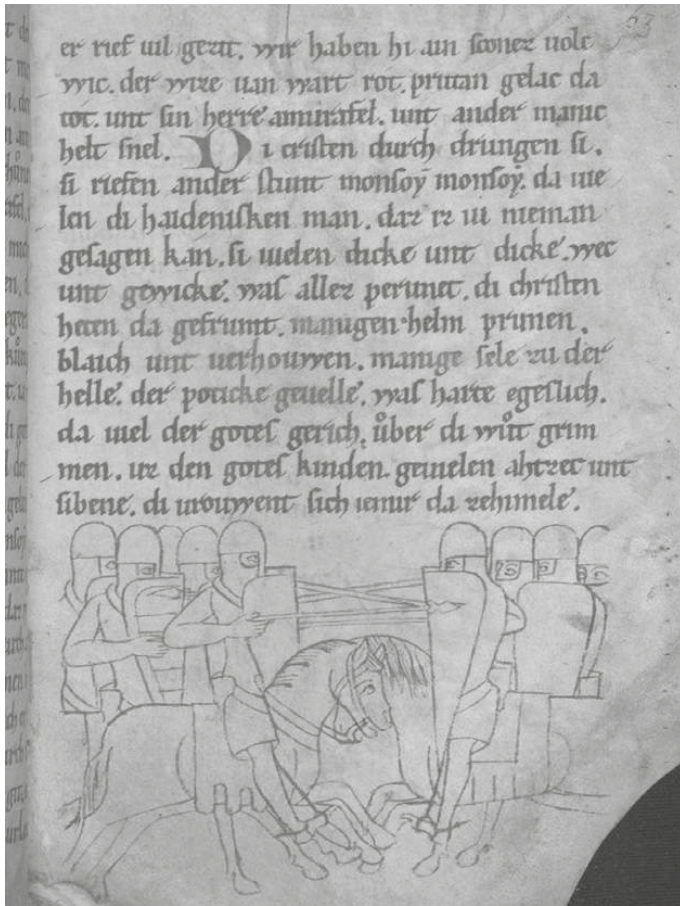 63
er rief uil gezit. wir haben hi ain sconez uolc
wic. der wize uan wart rot. prutan gelac da
tot. unt sin herre amirafel. unt ander manic
helt snel. Di cristen durch drungen si.
si riefen ander stunt monsoẏ monsoẏ. da uie
len di haidenisken man. daz iz iu nieman
gesagen kan. si uielen dicke unt dicke. wec
unt gewicke. was allez perunet. di christen
heten da gefrumt. manigen helm prunen.
blaich unt uerhouwen. manige sele zu der
helle. der poticke geuelle. was harte egeslich.
da uiel der gotes gerich. uͦber di wuͦt grim
men. uz den gotes kinden. geuielen ahtzec unt
sibene. di urouwent sich iemir da zehimele.